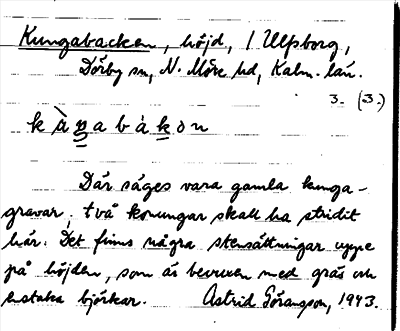 Kungabacken, höjd, / Ulfsborg,
Dörby sn, N. Möre hd, Kalm. län.
3. (3.)
k à n a b á k o n
Där säges vara gamla kunga-
gravar; två konungar skall ha stridit
här. Det finns några stensättningar uppe
på höjden, som är bevuxen med gräs och
enstaka björkar. Astrid Göransson, 1943.